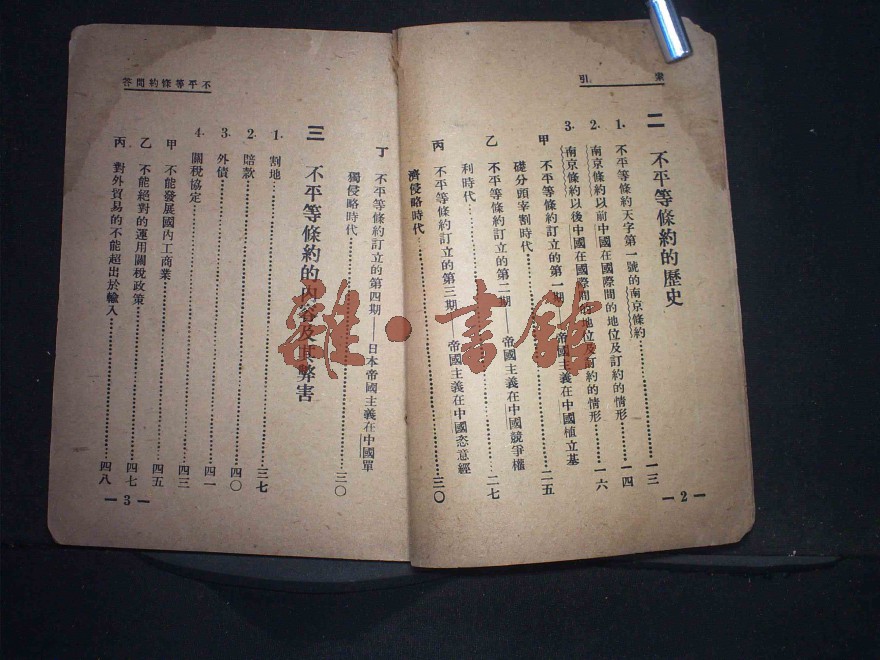 索引
二 不平等條約的歷史
1. 不平等條約天字第一號的南京條約……一三
2. 南京條約以前中國在國際間的地位及訂約的情形……一四
3. 南京條約以後中國在國際間的地位及訂約的情形……一六
甲 不平等條約訂立的第一期——帝國主義在中國植立基
礎分頭宰割時代……二五
乙 不平等條約訂立的第二期——帝國主義在中國競爭權
利時代……二七
丙 不平等條約訂立的第三期——帝國主義在中國恣意經
濟侵略時代……三〇
— 2 —
不平等條約問答
丁 不平等條約訂立的第四期——日本帝國主義在中國單
獨侵略時代……三〇
三 不平等條約的內容及其弊害
1. 割地……三七
2. 賠款……四〇
3. 外債……四一
4. 關稅協定……四三
甲 不能發展國內工商業……四五
乙 不能絕對的運用關稅政策……四七
丙 對外貿易的不能超出於輸入……四八
— 3 —
雜·書館